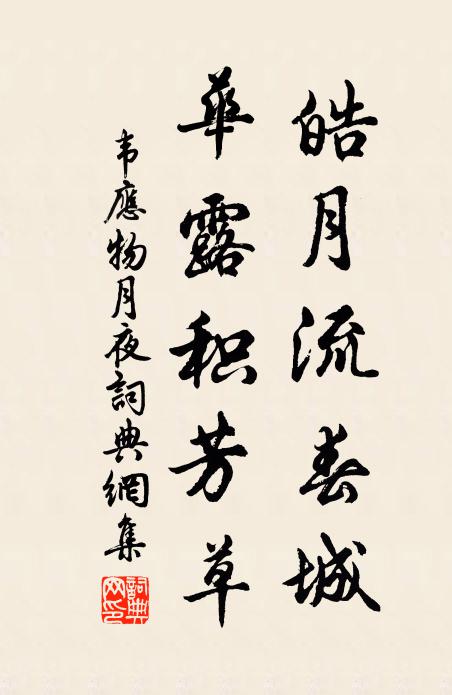 皓月流春城
華露积芳草
韦應物月夜詞典網集
詞典网印